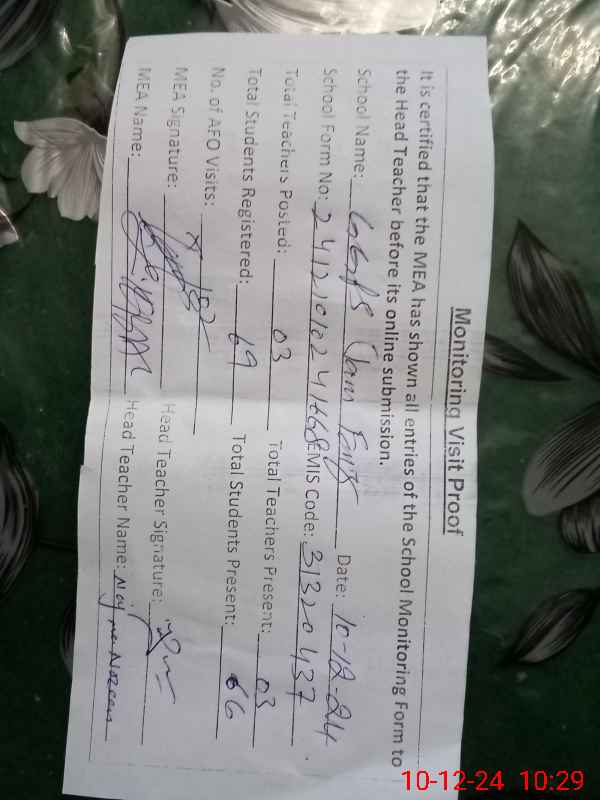 Monitoring Visit Proof
It is certified that the MEA has shown all entries of the School Monitoring Form to
the Head Teacher before its online submission.
School Name: Date: 10-12-24
School Form No: EMIS Code: 31320437
Total Teachers Posted: 03 Total Teachers Present: 03
Total Students Registered: 69 Total Students Present: 66
No. of AFO Visits:
MEA Signature: Head Teacher Signature:
MEA Name: Head Teacher Name:
10-12-24 10:29